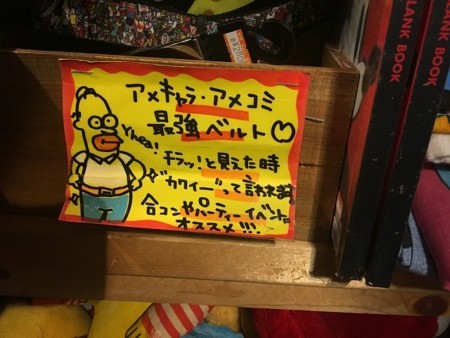 アメキャラ・アメコミ
最強ベルト♡
Yhea!
チラッ!と見えた時
"カワイー"って言われ
合コンやパーティーイベントに
オススメ!!!
BLANK BOOK
BLANK BOOK